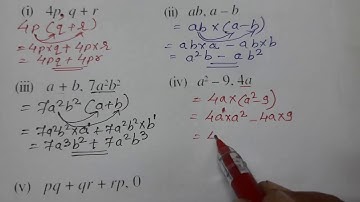 (i) 4p, q + r
4p (q + r)
= 4p×q + 4p×r
= 4pq + 4pr
(ii) ab, a – b
= ab × (a – b)
= ab×a – ab×b
= a²b – ab²
(iii) a + b, 7a²b²
= 7a²b² (a + b)
= 7a²b²×a¹ + 7a²b²×b¹
= 7a³b² + 7a²b³
(iv) a² – 9, 4a
= 4a × (a² – 9)
= 4a¹×a² – 4a×9
= 4
(v) pq + qr + rp, 0